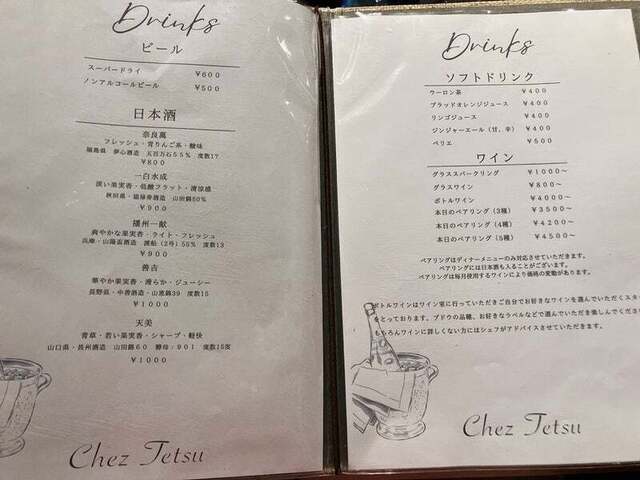 Drinks
ビール
スーパードライ ¥600
ノンアルコールビール ¥500
日本酒
奈良萬
フレッシュ・青りんご系・酸味
福島県 夢心酒造 五百万石55% 度数17
¥800
一白水成
淡い果実香・低酸フラット・清涼感
秋田県・福禄寿酒造 山田錦60%
¥900
播州一献
爽やかな果実香・ライト・フレッシュ
兵庫・山陽盃酒造 渡船(2号)55% 度数13
¥900
善吉
華やか果実香・滑らか・ジューシー
長野県・中善酒造・山恵錦39 度数15
¥1000
天美
青草・若い果実香・シャープ・軽快
山口県・長州酒造 山田錦60 酵母:901 度数15度
¥1000
Chez Tetsu
Drinks
ソフトドリンク
ウーロン茶 ¥400
ブラッドオレンジジュース ¥400
リンゴジュース ¥400
ジンジャーエール(甘,辛) ¥400
ペリエ ¥500
ワイン
グラススパークリング ¥1000~
グラスワイン ¥800~
ボトルワイン ¥4000~
本日のペアリング(3種) ¥3500~
本日のペアリング(4種) ¥4200~
本日のペアリング(5種) ¥4500~
ペアリングはディナーメニューのみ対応させていただきます。
ペアリングには日本酒も入ることがございます。
ペアリングは毎月使用するワインにより価格の変動があります。
ボトルワインはワイン室に行っていただきご自分でお好きなワインを選んでいただくスタ
をとっております。ブドウの品種、お好きなラベルなどで選んでいただき楽しんでくださ
ちろんワインに詳しくない方にはシェフがアドバイスさせていただきます。
Chez Tetsu